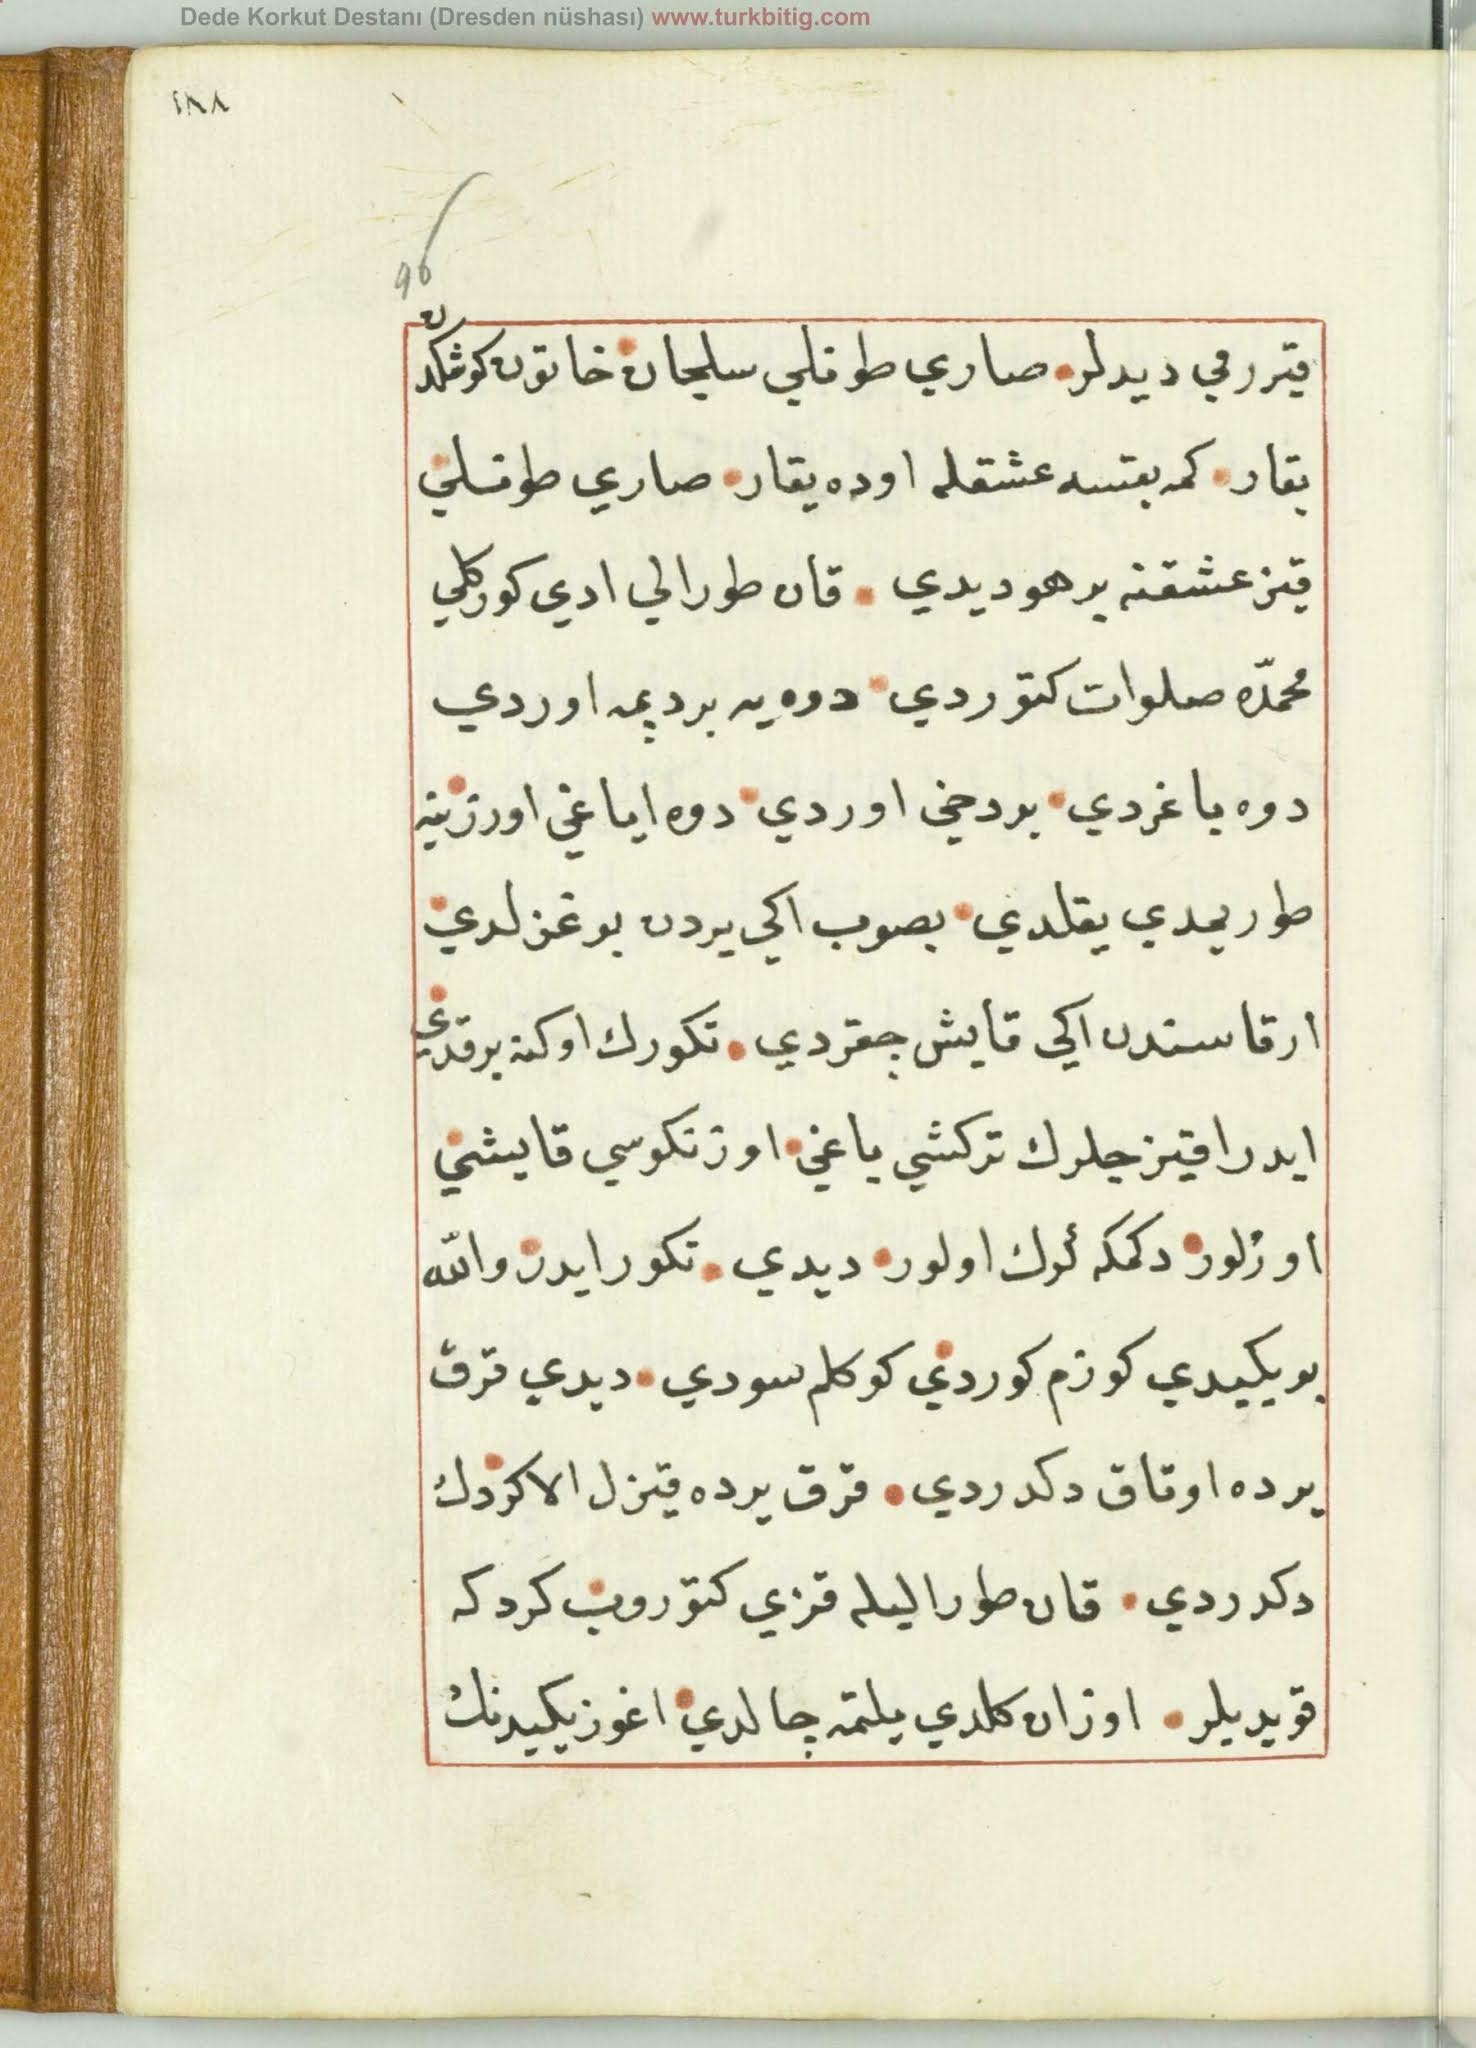 Dede Korkut Destanı (Dresden nüshası) www.turkbitig.com
١٨٨
96
قيررمي ديدلر صاري طونلي سلجان خاتون كوشكدن
بقار كمه بقسه عشقله اوده يقار صاري طونلي
قيز عشقنه بر هو ديدي قان طورالي ادي كوركلي
محمدّه صلوات كتوردي دوه يه بر دپمه اوردي
دوه باغردي بر دخي اوردي دوه اياغي اورزينه
طوريمدي يقلدي بصوب اكي يردن بوغزلدي
ارقاسندن اكي قايش چقردي تكورك اوكنه برقدي
ايدر اقينجلرك تركشي باغي اوزنكوسي قايشي
اوزلور دكمكه كرك اولور ديدي تكور ايدر والله
بو يكيدي كوزم كوردي كوكلم سودي ديدي قرق
يرده اوتاق دكدردي قرق يرده قيزل الا كردك
دكدردي قان طوراليله قزي كتوروب كردكه
قويديلر اوزان كلدي يلتمه چالدي اغوز يكيدنك